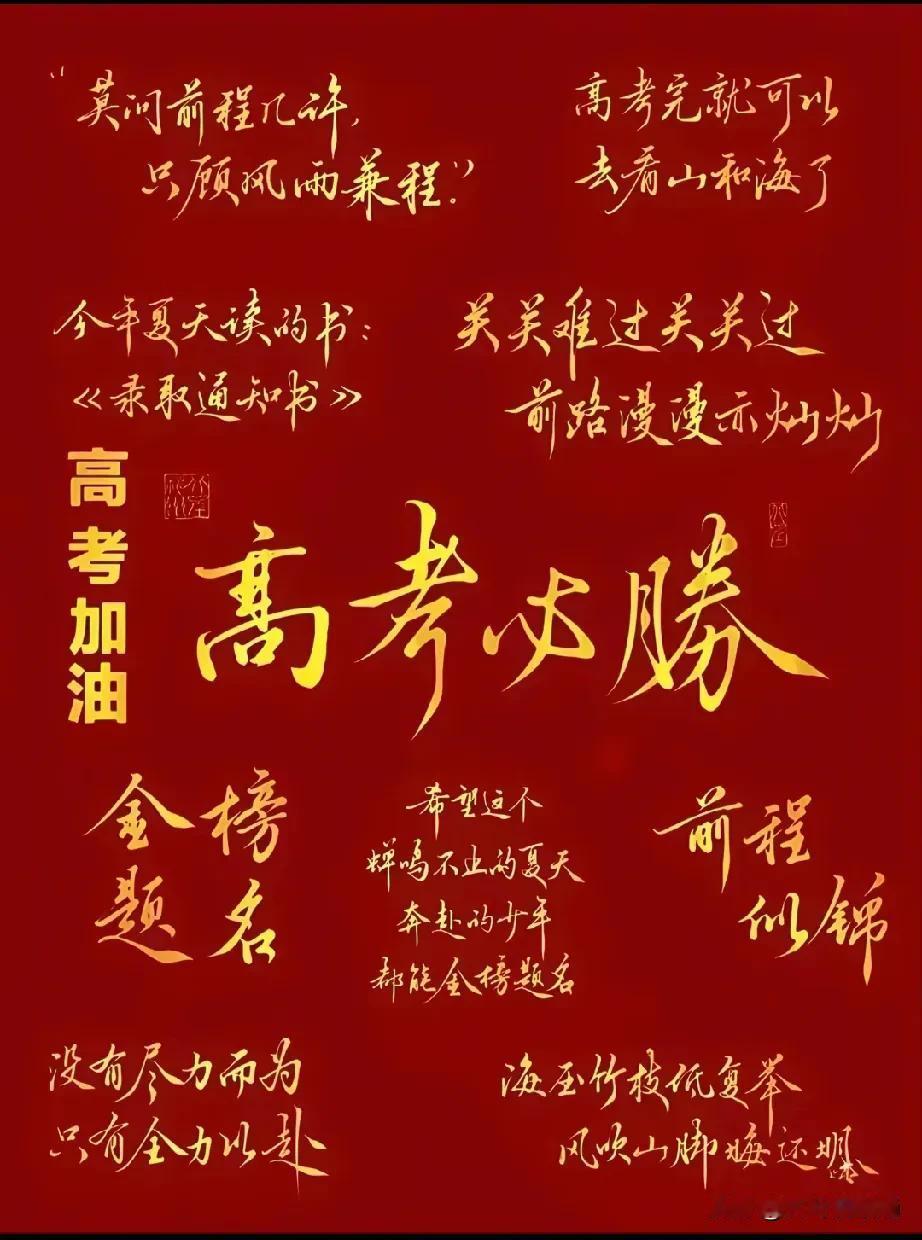 “莫问前程几许，
只顾风雨兼程.”
高考完就可以
去看山和海了
今年夏天读的书：
《录取通知书》
关关难过关关过
前路漫漫亦灿灿
高考加油
高考必勝
金榜
题名
希望这个
蝉鸣不止的夏天
奔赴的少年
都能金榜题名
前程
似锦
没有尽力而为
只有全力以赴
海压竹枝低复举
风吹山脚晦还明